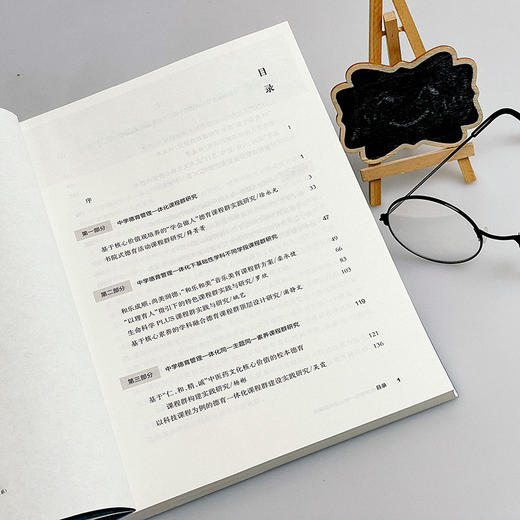 目
录
序 1
第一部分 中学德育管理一体化课程群研究 1
基于核心价值观培养的“学会做人”德育课程群实践研究/徐永光 3
书院式德育活动课程群研究/ 33
第二部分 中学德育管理一体化下基础性学科不同学段课程群研究 47
和乐成顺，尚美明德：“和乐和美”音乐美育课程群方案/ 49
“以理育人”指引下的特色课程群实践与研究/罗欣 66
生命科学PLUS课程群实践与研究/姚艺 83
基于核心素养的学科融合德育课程群顶层设计研究/ 103
第三部分 中学德育管理一体化同一主题同一素养课程群研究 119
基于“仁、和、精、诚”中医药文化核心价值的校本德育
课程群构建实践研究/杨彬 121
以科技课程为例的德育一体化课程群建设实践研究/ 136
目录 1